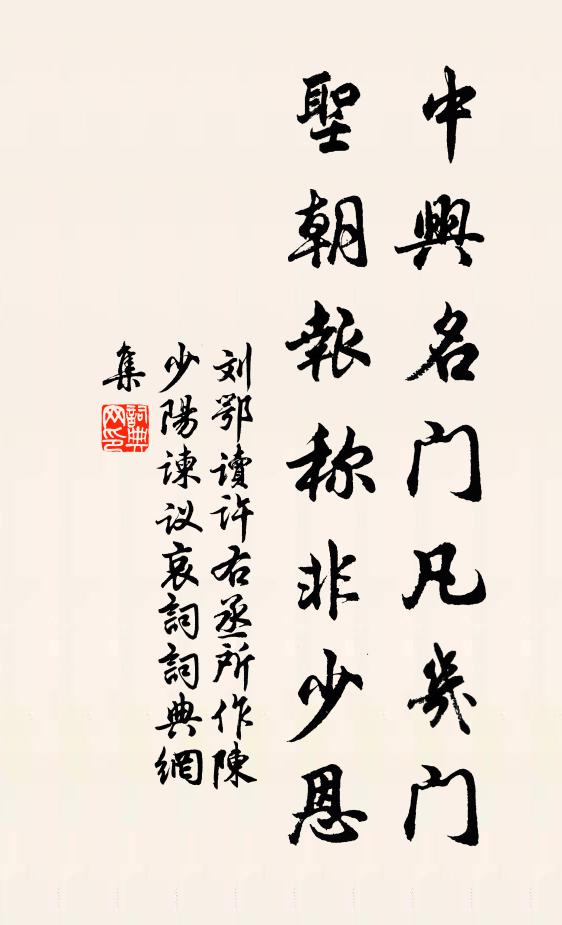 中興名门凡幾门
聖朝報称非少恩
刘鄂讀许右丞所作陳
少陽谏议哀詞詞典網
集
詞典
网印